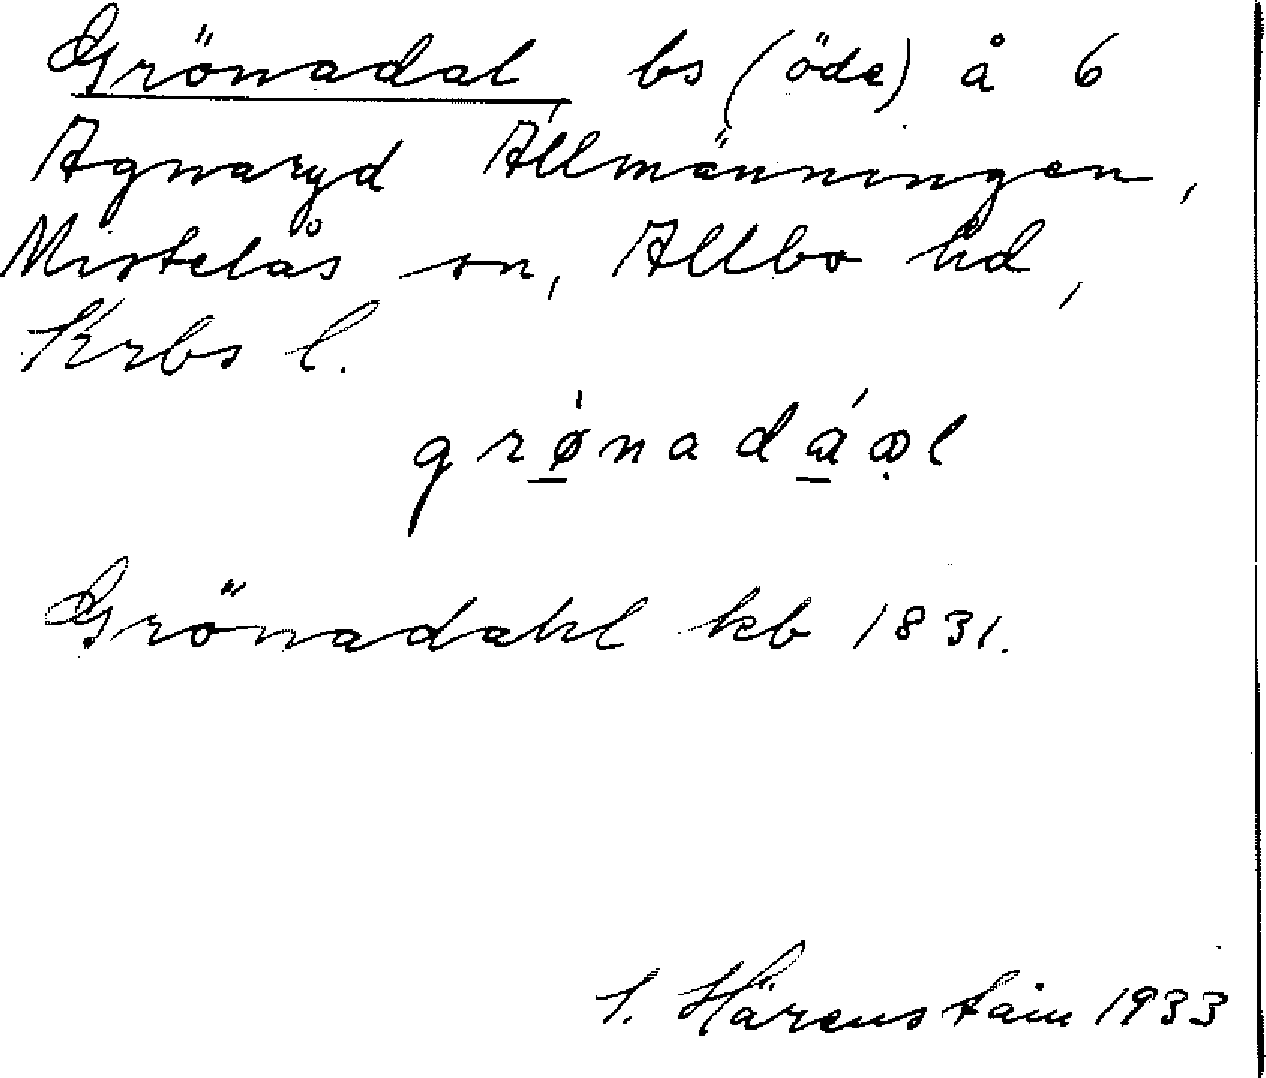 Grönadal, bs (öde) å 6
Agnaryd Allmänningen,
Mistelås sn, Allbo hd,
Krbs l.
grǿ̲nadá̲ạl
Grönadahl kb 1831.
1933